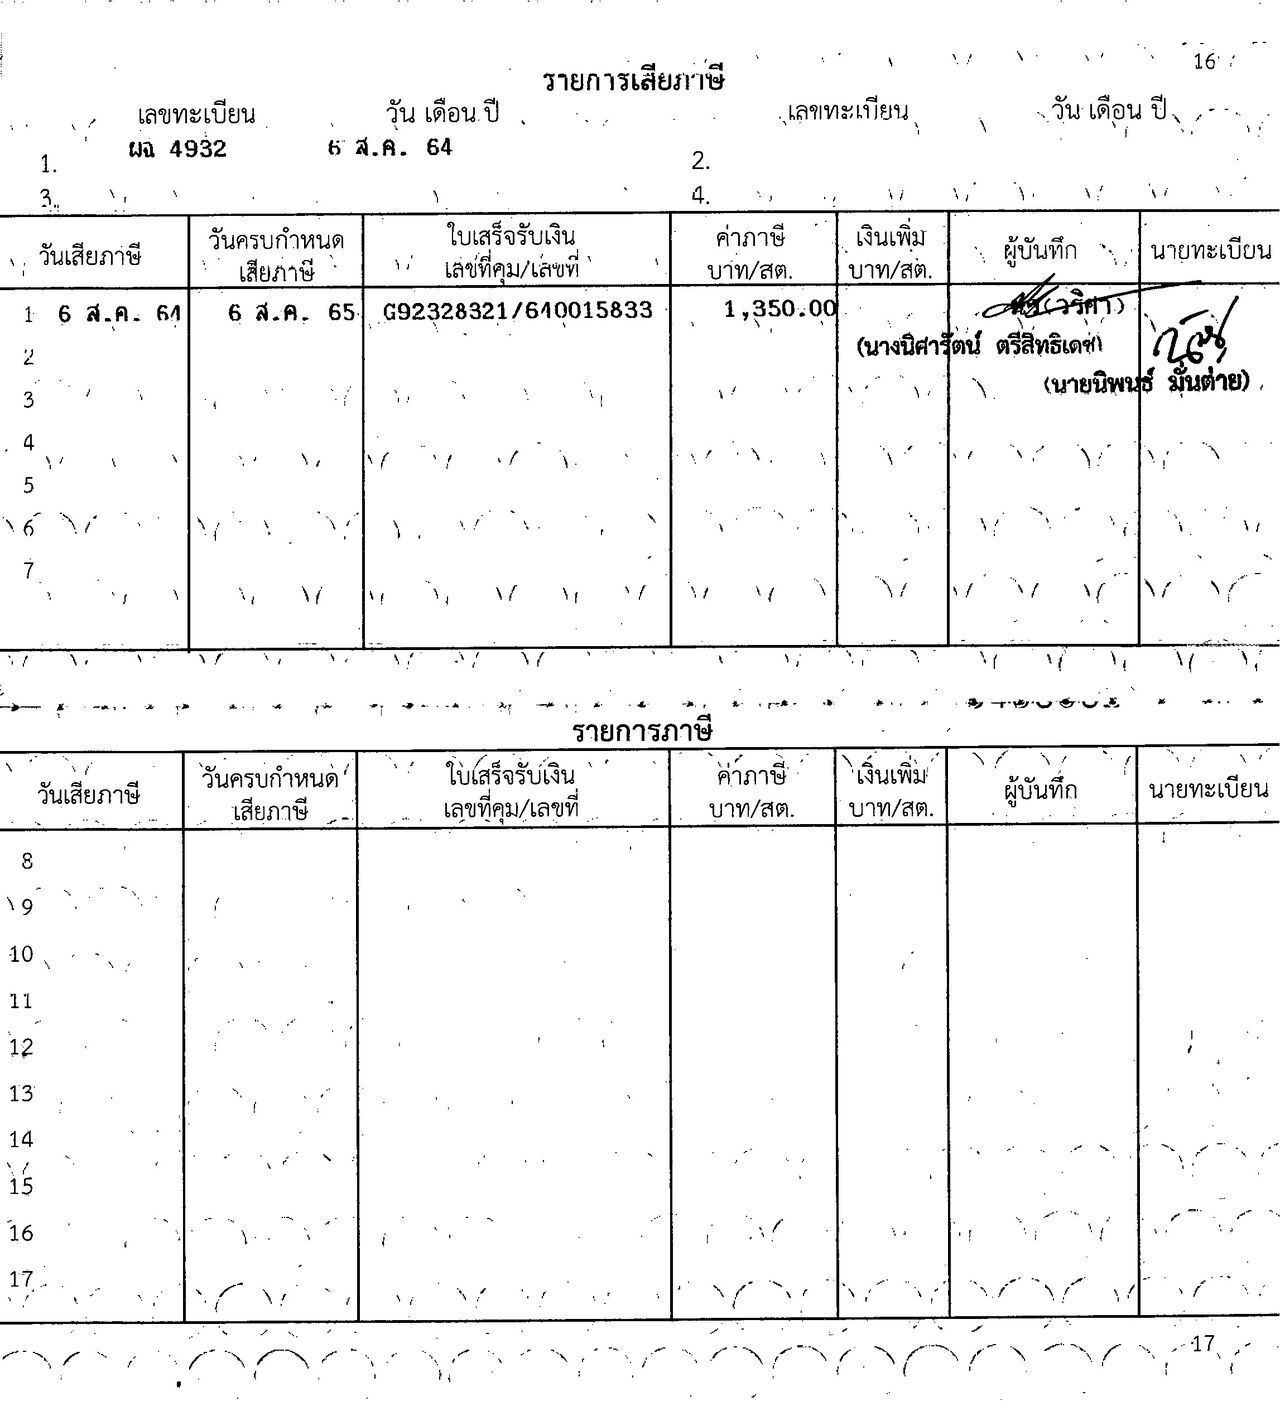 16
รายการเสียภาษี
เลขทะเบียน วัน เดือน ปี เลขทะเบียน วัน เดือน ปี
1. ผฉ 4932 6 ส.ค. 64 2.
3. 4.
วันเสียภาษี วันครบกำหนด เสียภาษี ใบเสร็จรับเงิน เลขที่คุม/เลขที่ ค่าภาษี บาท/สต. เงินเพิ่ม บาท/สต. ผู้บันทึก นายทะเบียน
1 6 ส.ค. 64 6 ส.ค. 65 G92328321/640015833 1,350.00
2 (นางนิศารัตน์ ตรีสิทธิเดช)
3 (นายนิพนธ์ มั่นต่าย)
4
5
6
7
รายการภาษี
วันเสียภาษี วันครบกำหนด เสียภาษี ใบเสร็จรับเงิน เลขที่คุม/เลขที่ ค่าภาษี บาท/สต. เงินเพิ่ม บาท/สต. ผู้บันทึก นายทะเบียน
8
9
10
11
12
13
14
15
16
17
17